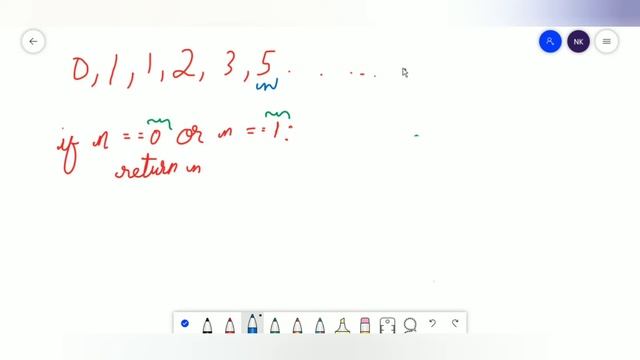 0, 1, 1, 2, 3, 5 . . . . . .
n
if n == 0 or n == 1:
return n
NK